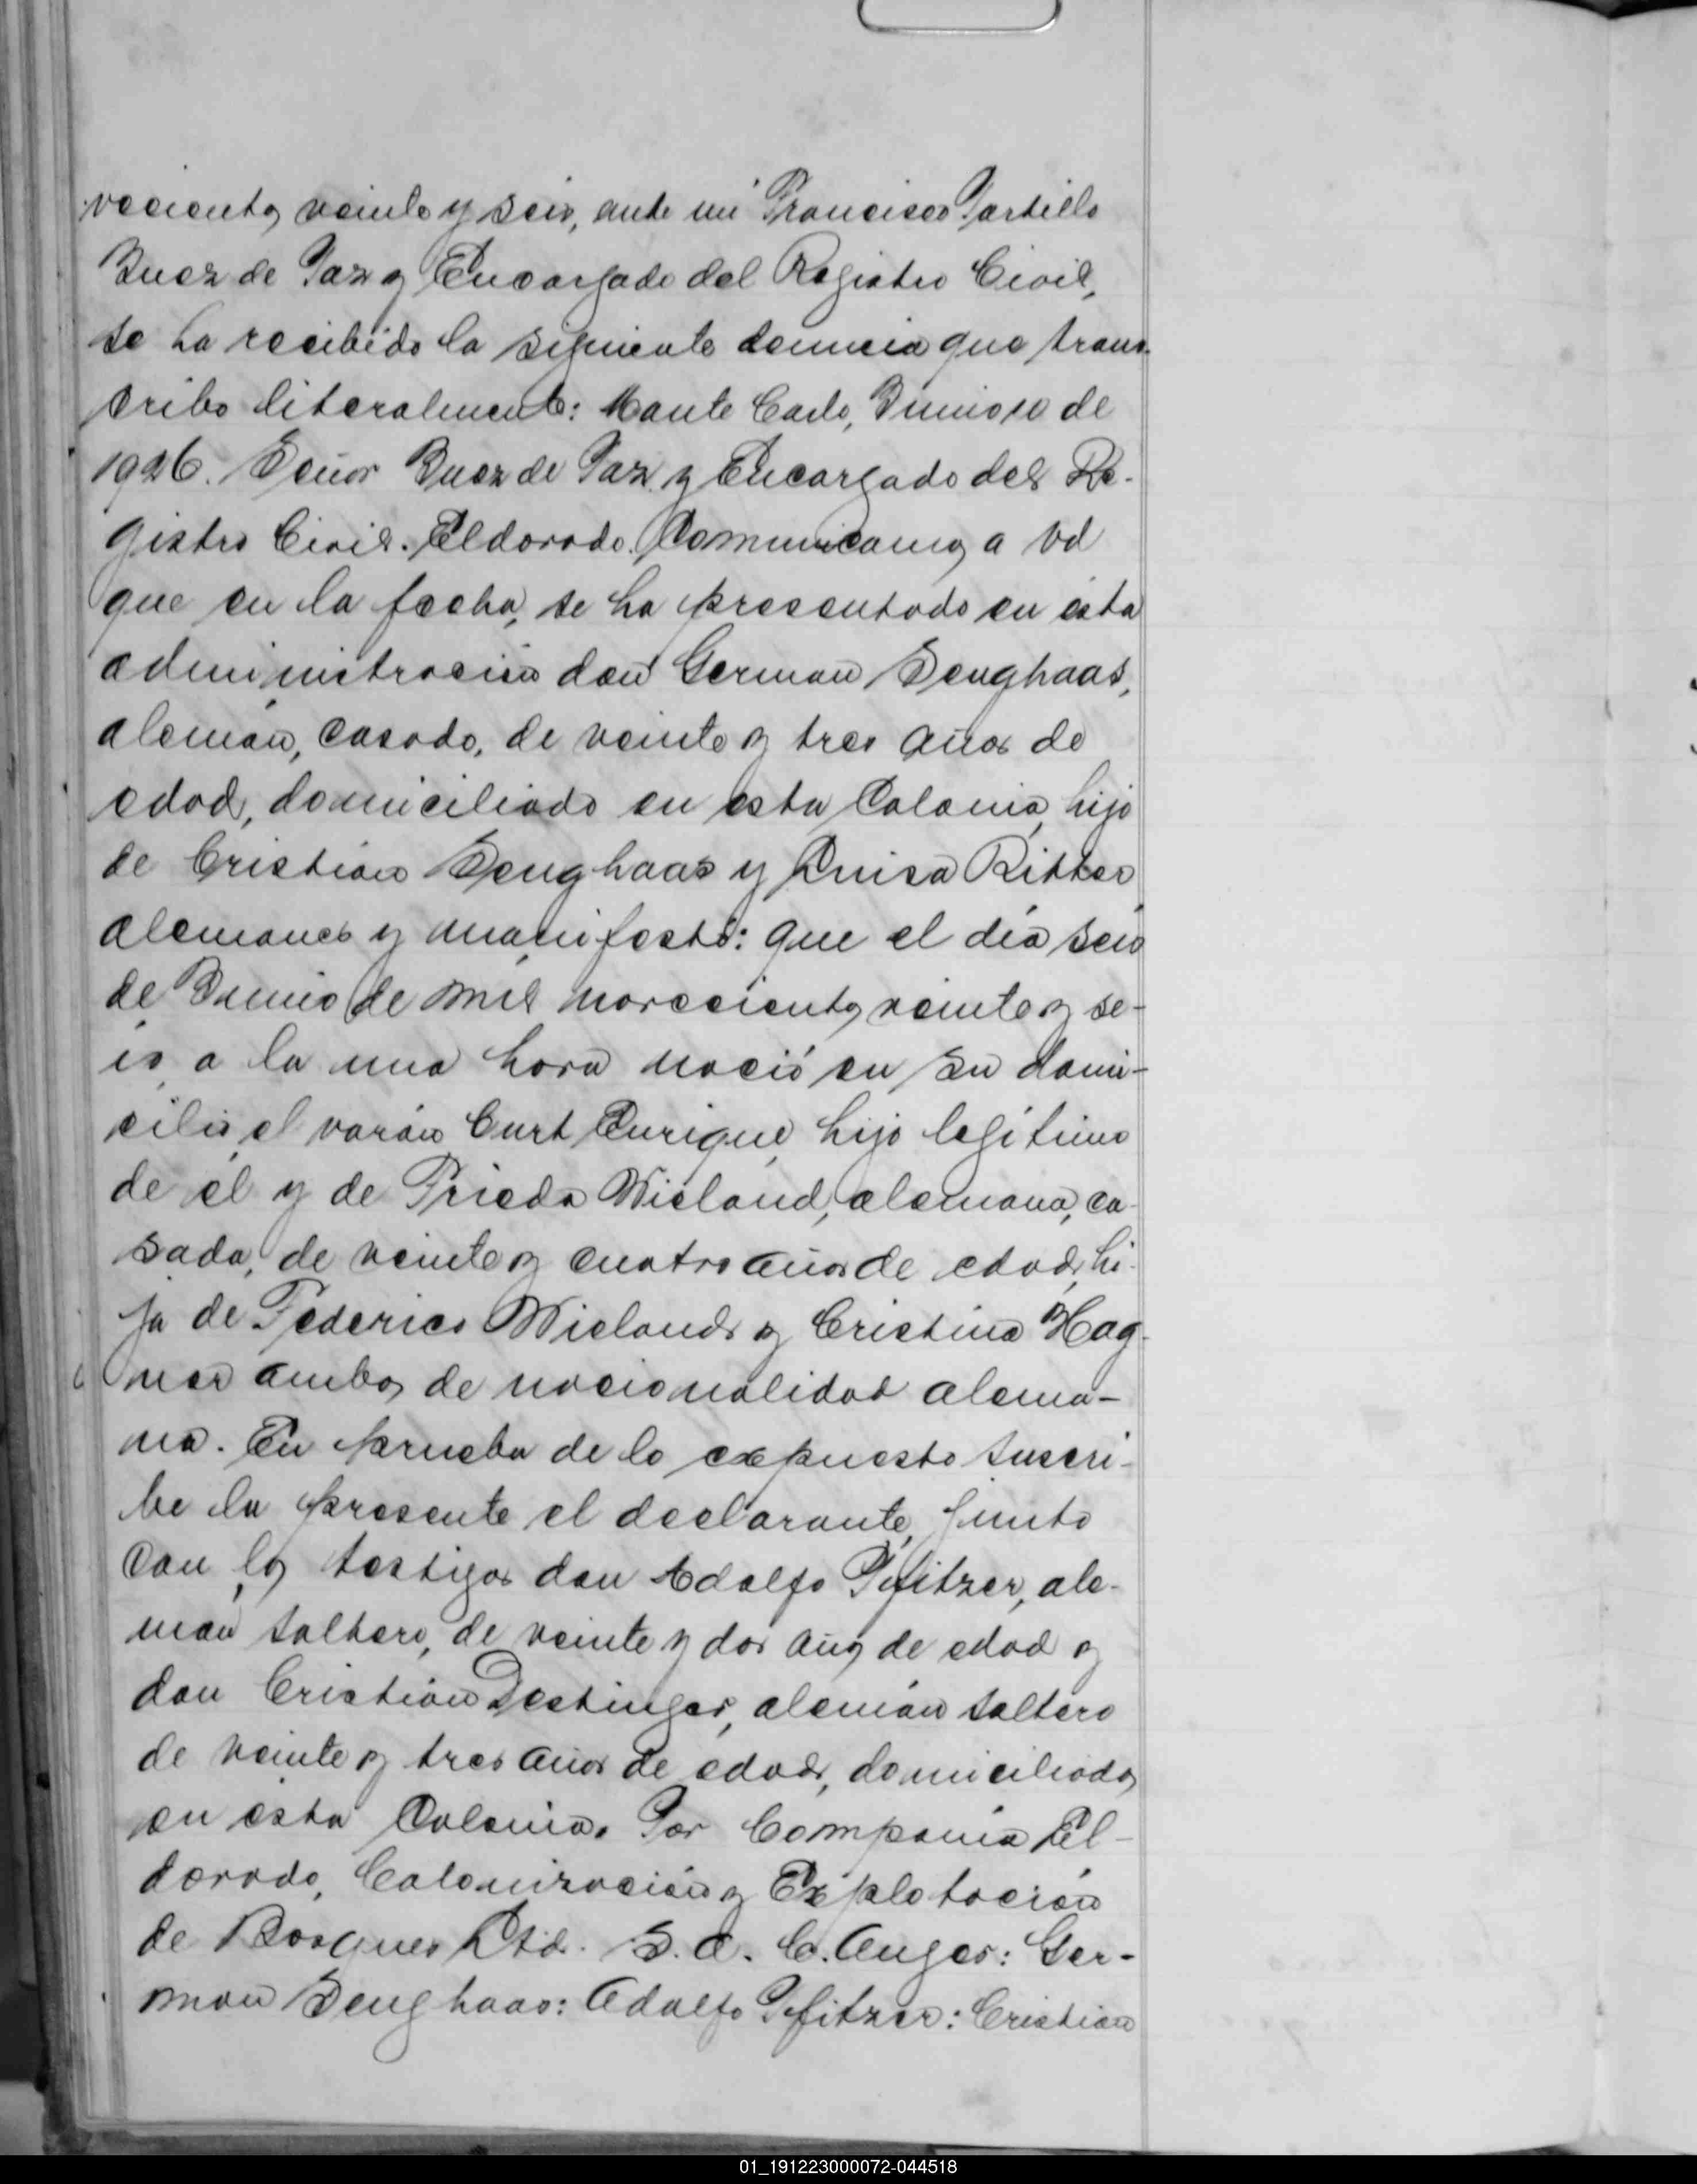 vecientos veinte y seis, ante mi Francisco Portillo
Juez de Paz y Encargado del Registro Civil,
se ha recibido la siguiente denuncia que trans-
cribo literalmente: Monte Carlo, Junio 10 de
1926. Señor Juez de Paz y Encargado del Re-
gistro Civil. Eldorado. Comunicamos a Vd
que en la fecha, se ha presentado en ésta
administración don German Senghaas,
alemán, casado, de veinte y tres años de
edad, domiciliado en esta Colonia, hijo
de Cristián Senghaas y Luisa Ritter,
alemanes y manifestó: que el día seis
de Junio de mil novecientos veinte y se-
is, a la una hora nació en su domi-
cilio, el varón Curt Enrique, hijo legítimo
de él y de Frieda Wieland, alemana, ca-
sada, de veinte y cuatro años de edad, hi-
ja de Federico Wieland y Cristina Hag-
ner ambos de nacionalidad alema-
na. En prueba de lo expuesto suscri-
be la presente el declarante, junto
con los testigos don Adolfo Pfitzer, ale-
mán soltero, de veinte y dos años de edad y
don Cristián Destinger, alemán soltero
de veinte y tres años de edad, domiciliados
en ésta Colonia. Por Compania El-
dorado, Colonización y Explotación
de Bosques Ltd. S. A. C. Auger: Ger-
man Senghaas: Adolfo Pfitzer: Cristian
01_191223000072-044518